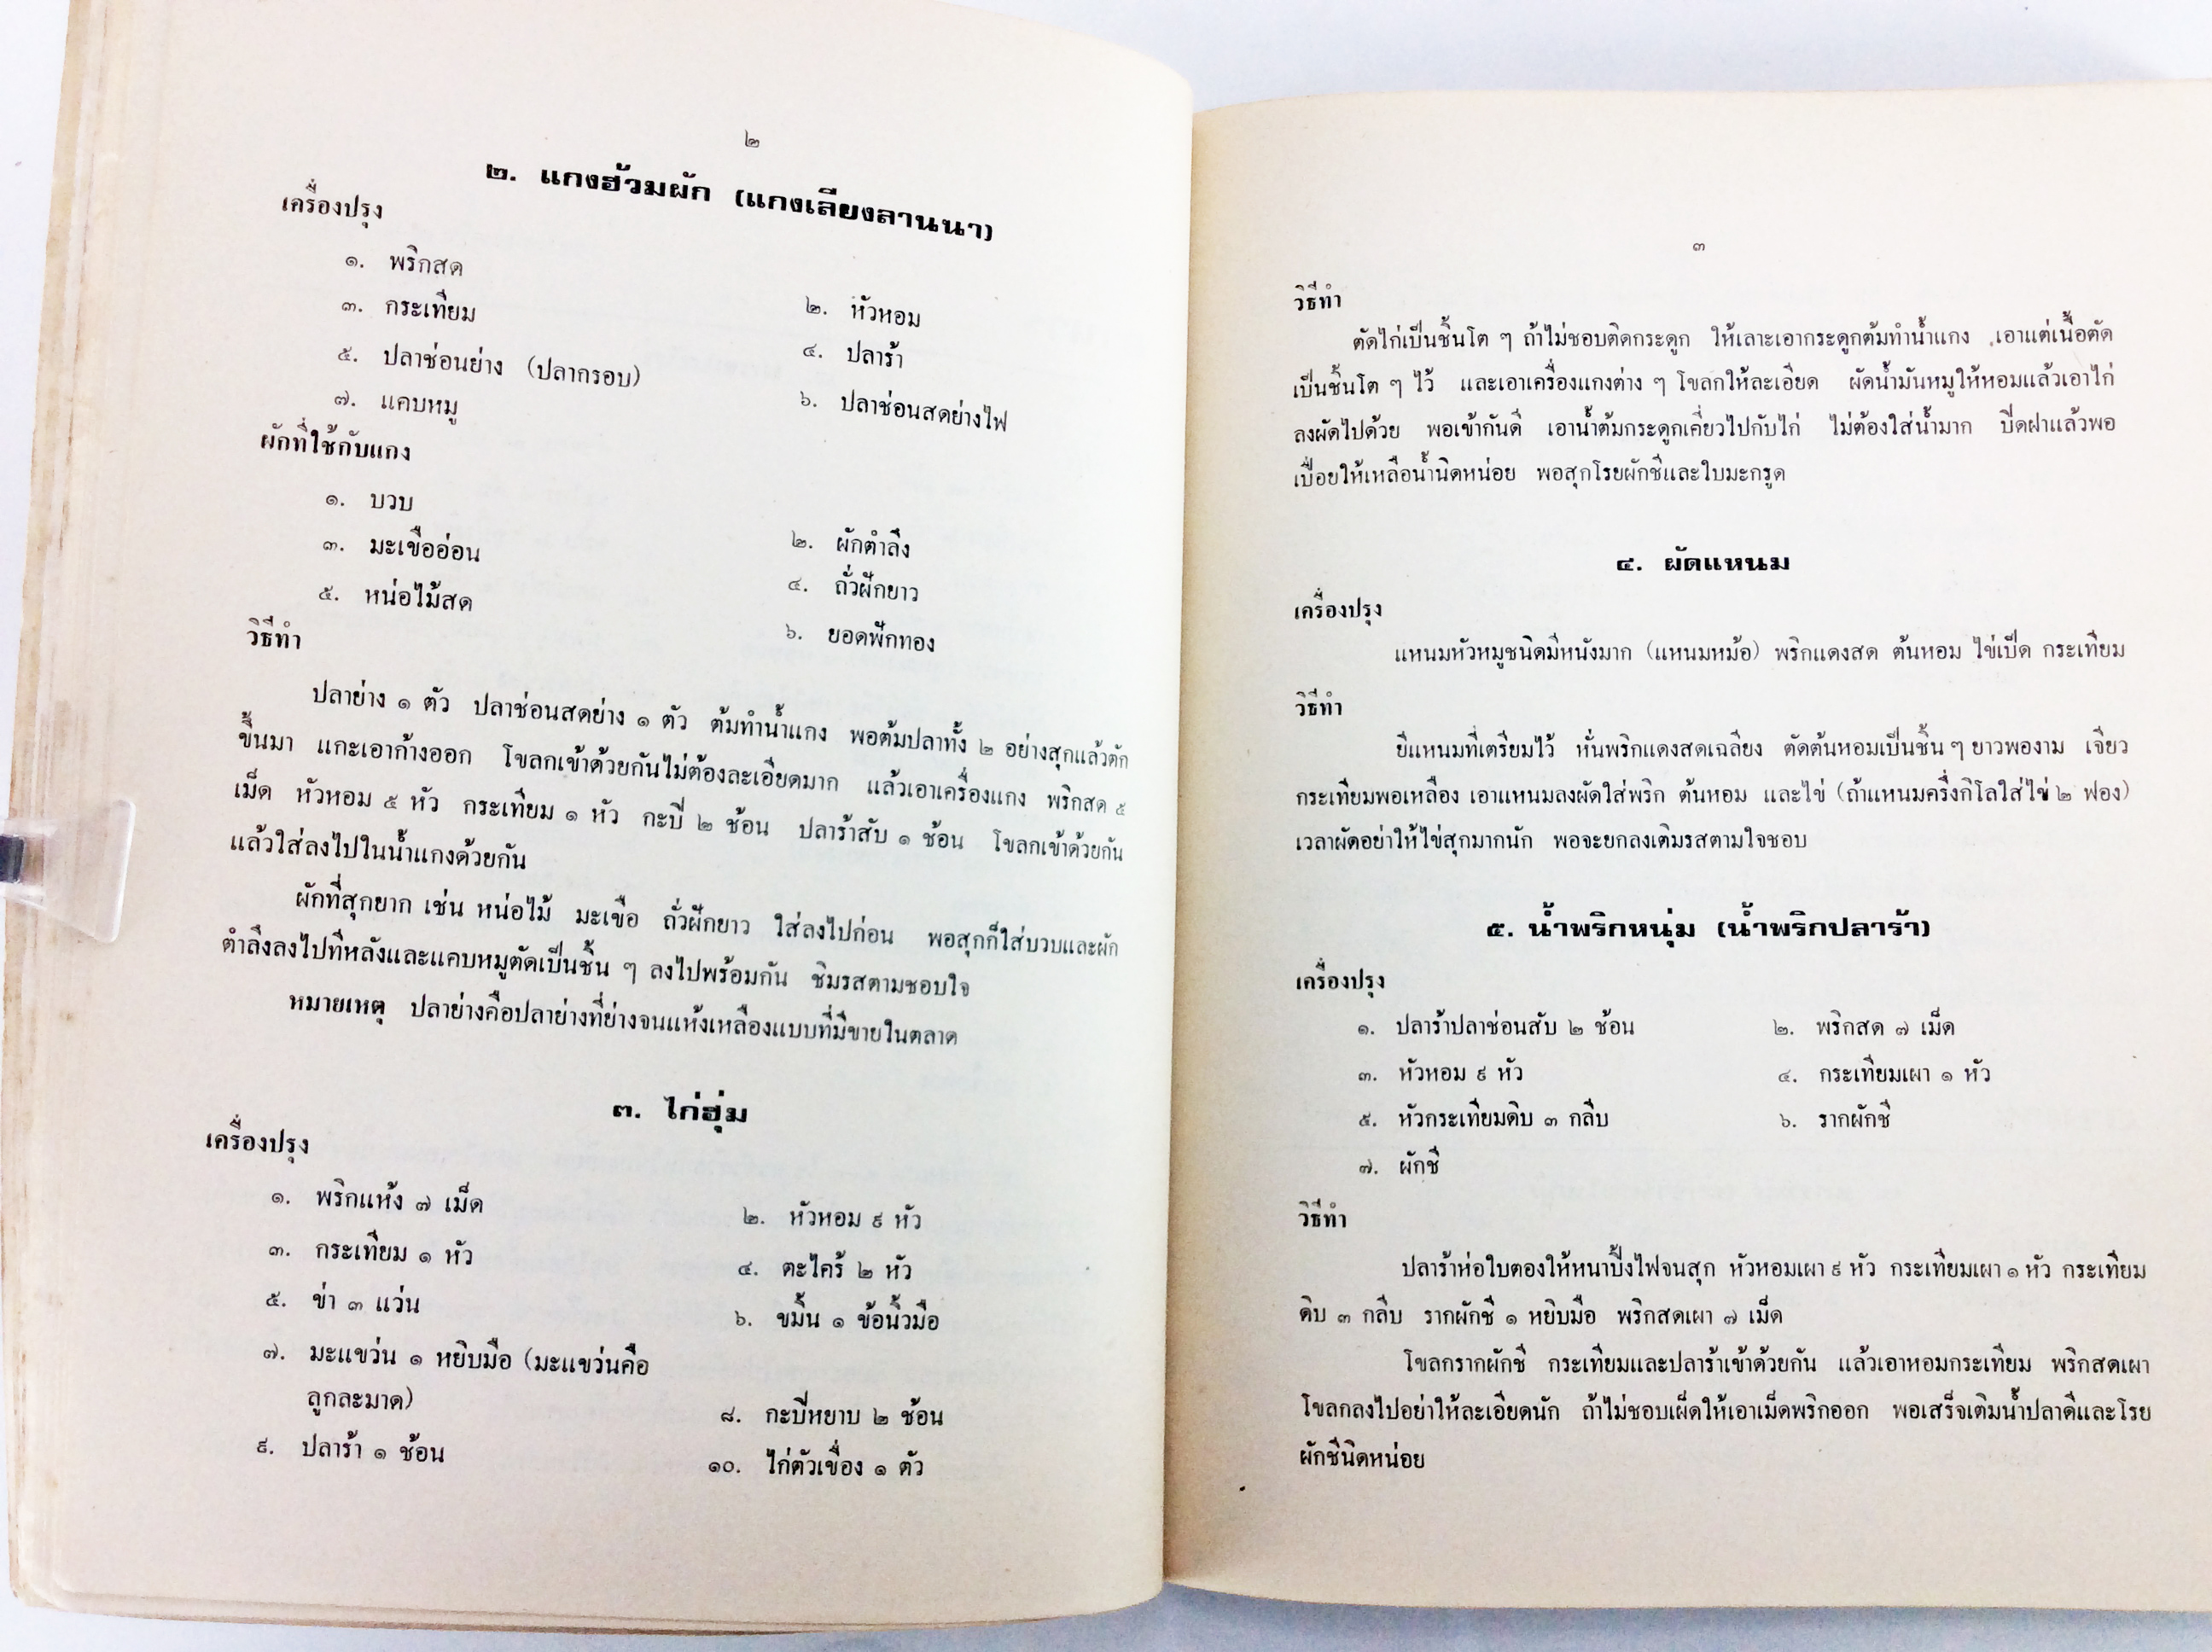 ๒
๒. แกงฮ้วมผัก (แกงเลียงลานนา)
เครื่องปรุง
๑. พริกสด
๒. หัวหอม
๓. กระเทียม
๔. ปลาร้า
๕. ปลาช่อนย่าง (ปลากรอบ)
๖. ปลาช่อนสดย่างไฟ
๗. แคบหมู
ผักที่ใช้กับแกง
๑. บวบ
๒. ผักตำลึง
๓. มะเขืออ่อน
๔. ถั่วฝักยาว
๕. หน่อไม้สด
๖. ยอดฟักทอง
วิธีทำ
ปลาย่าง ๑ ตัว ปลาช่อนสดย่าง ๑ ตัว ต้มทำน้ำแกง พอต้มปลาทั้ง ๒ อย่างสุกแล้วตัก
ขึ้นมา แกะเอาก้างออก โขลกเข้าด้วยกันไม่ต้องละเอียดมาก แล้วเอาเครื่องแกง พริกสด ๕
เม็ด หัวหอม ๕ หัว กระเทียม ๑ หัว กะปี ๒ ช้อน ปลาร้าสับ ๑ ช้อน โขลกเข้าด้วยกัน
แล้วใส่ลงไปในน้ำแกงด้วยกัน
ผักที่สุกยาก เช่น หน่อไม้ มะเขือ ถั่วฝักยาว ใส่ลงไปก่อน พอสุกก็ใส่บวบและผัก
ตำลึงลงไปทีหลังและแคบหมูตัดเป็นชิ้น ๆ ลงไปพร้อมกัน ชิมรสตามชอบใจ
หมายเหตุ ปลาย่างคือปลาย่างที่ย่างจนแห้งเหลืองแบบที่มีขายในตลาด
๓. ไก่ฮุ่ม
เครื่องปรุง
๑. พริกแห้ง ๗ เม็ด
๒. หัวหอม ๙ หัว
๓. กระเทียม ๑ หัว
๔. ตะไคร้ ๒ หัว
๕. ข่า ๓ แว่น
๖. ขมิ้น ๑ ข้อนิ้วมือ
๗. มะแขว่น ๑ หยิบมือ (มะแขว่นคือ
ลูกละมาด)
๘. กะปีหยาบ ๒ ช้อน
๙. ปลาร้า ๑ ช้อน
๑๐. ไก่ตัวเขื่อง ๑ ตัว
๓
วิธีทำ
ตัดไก่เป็นชิ้นโต ๆ ถ้าไม่ชอบติดกระดูก ให้เลาะเอากระดูกต้มทำน้ำแกง เอาแต่เนื้อตัด
เป็นชิ้นโต ๆ ไว้ และเอาเครื่องแกงต่าง ๆ โขลกให้ละเอียด ผัดน้ำมันหมูให้หอมแล้วเอาไก่
ลงผัดไปด้วย พอเข้ากันดี เอาน้ำต้มกระดูกเคี่ยวไปกับไก่ ไม่ต้องใส่น้ำมาก ปิดฝาแล้วพอ
เปื่อยให้เหลือน้ำนิดหน่อย พอสุกโรยผักชีและใบมะกรูด
๔. ผัดแหนม
เครื่องปรุง
แหนมหัวหมูชนิดมีหนังมาก (แหนมหม้อ) พริกแดงสด ต้นหอม ไข่เป็ด กระเทียม
วิธีทำ
ยีแหนมที่เตรียมไว้ หั่นพริกแดงสดเฉลียง ตัดต้นหอมเป็นชิ้น ๆ ยาวพองาม เจียว
กระเทียมพอเหลือง เอาแหนมลงผัดใส่พริก ต้นหอม และไข่ (ถ้าแหนมครึ่งกิโลใส่ไข่ ๒ ฟอง)
เวลาผัดอย่าให้ไข่สุกมากนัก พอจะยกลงเติมรสตามใจชอบ
๕. น้ำพริกหนุ่ม (น้ำพริกปลาร้า)
เครื่องปรุง
๑. ปลาร้าปลาช่อนสับ ๒ ช้อน
๒. พริกสด ๗ เม็ด
๓. หัวหอม ๙ หัว
๔. กระเทียมเผา ๑ หัว
๕. หัวกระเทียมดิบ ๓ กลีบ
๖. รากผักชี
๗. ผักชี
วิธีทำ
ปลาร้าห่อใบตองให้หนาปิ้งไฟจนสุก หัวหอมเผา ๙ หัว กระเทียมเผา ๑ หัว กระเทียม
ดิบ ๓ กลีบ รากผักชี ๑ หยิบมือ พริกสดเผา ๗ เม็ด
โขลกรากผักชี กระเทียมและปลาร้าเข้าด้วยกัน แล้วเอาหอมกระเทียม พริกสดเผา
โขลกลงไปอย่าให้ละเอียดนัก ถ้าไม่ชอบเผ็ดให้เอาเม็ดพริกออก พอเสร็จเติมน้ำปลาดีและโรย
ผักชีนิดหน่อย